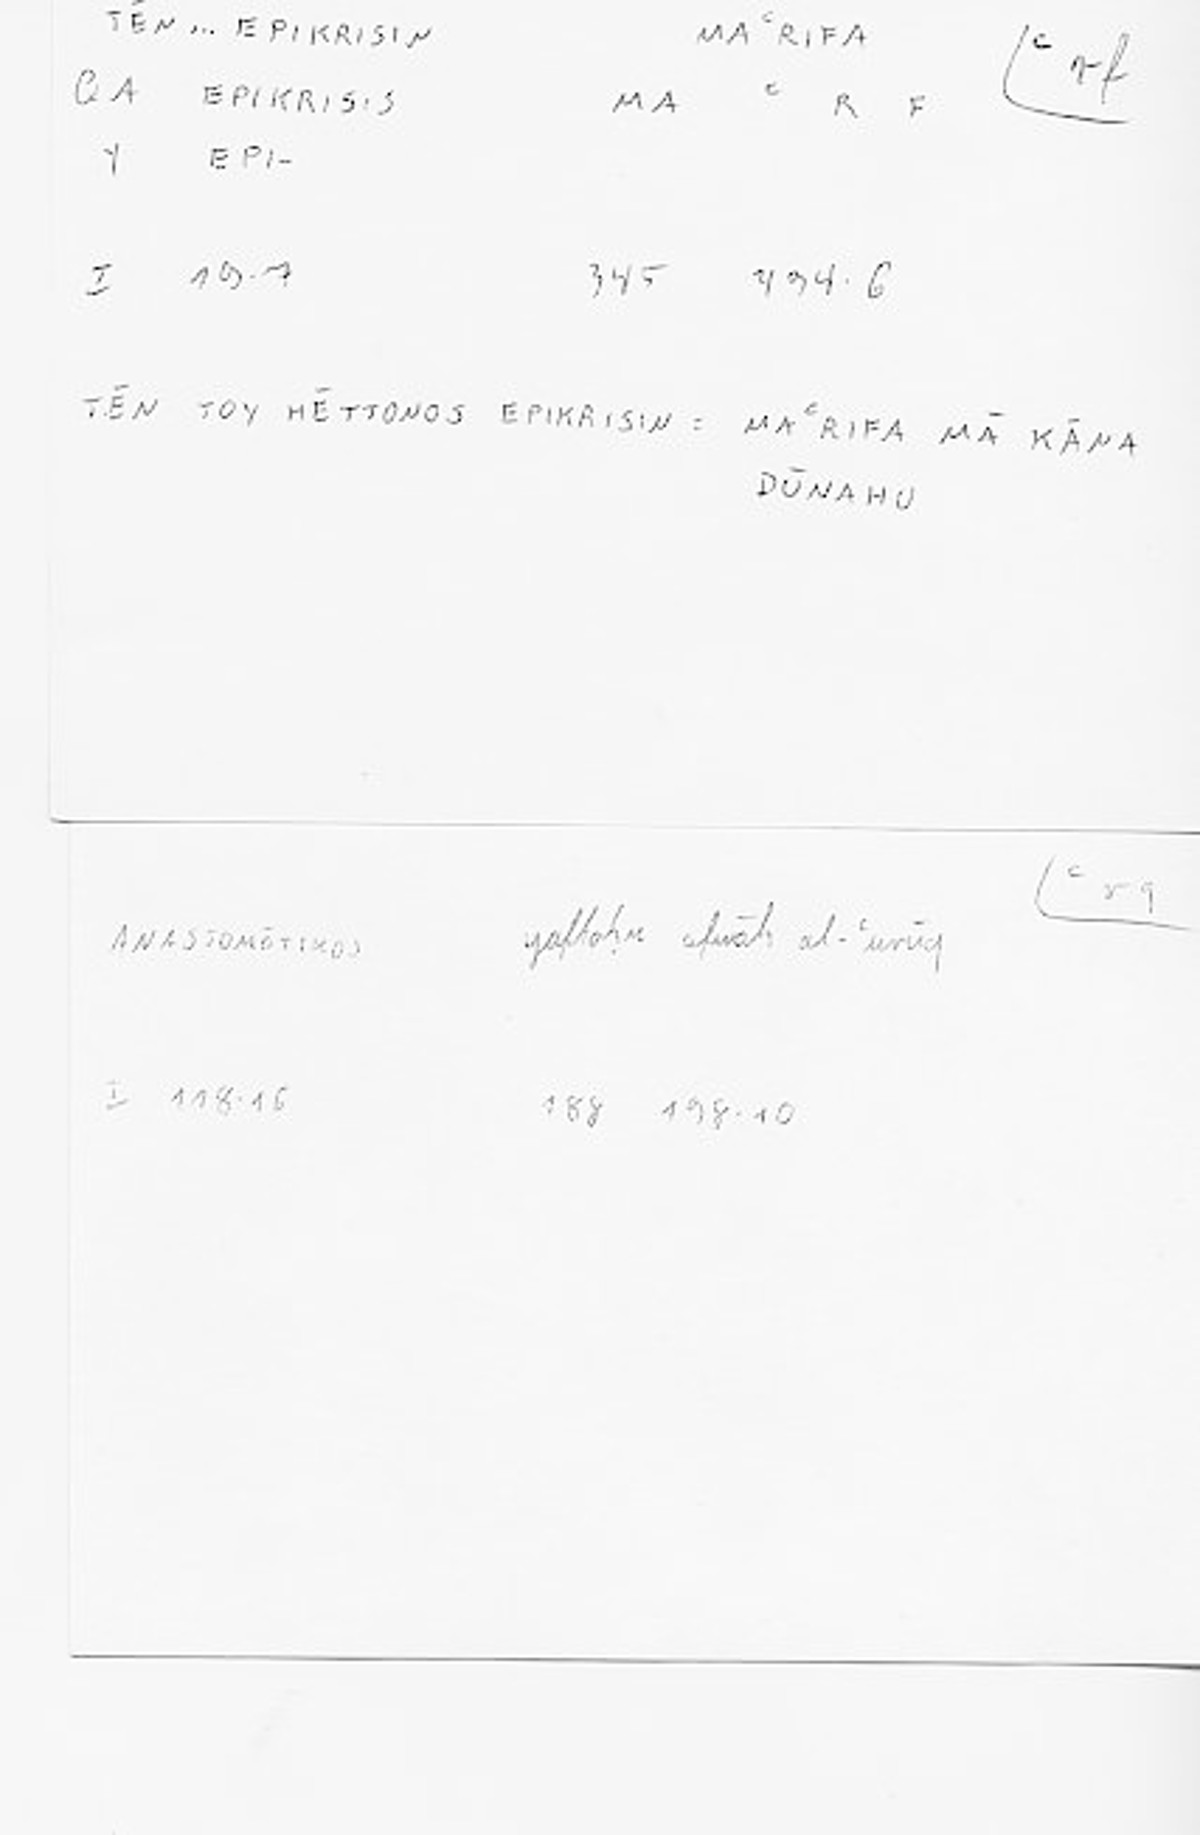 TĒN ... EPIKRISIN MAʿRIFA ʿrf
QA EPIKRISIS MA ʿ R F
Y EPI-
I 19.7 345 494.6
TĒN TOY HĒTTONOS EPIKRISIN = MAʿRIFA MĀ KĀNA
DŪNAHU
ʿrq
ANASTOMŌTIKOS yaftaḥu afwāh al-ʿurūq
I 118.16 188 198.10